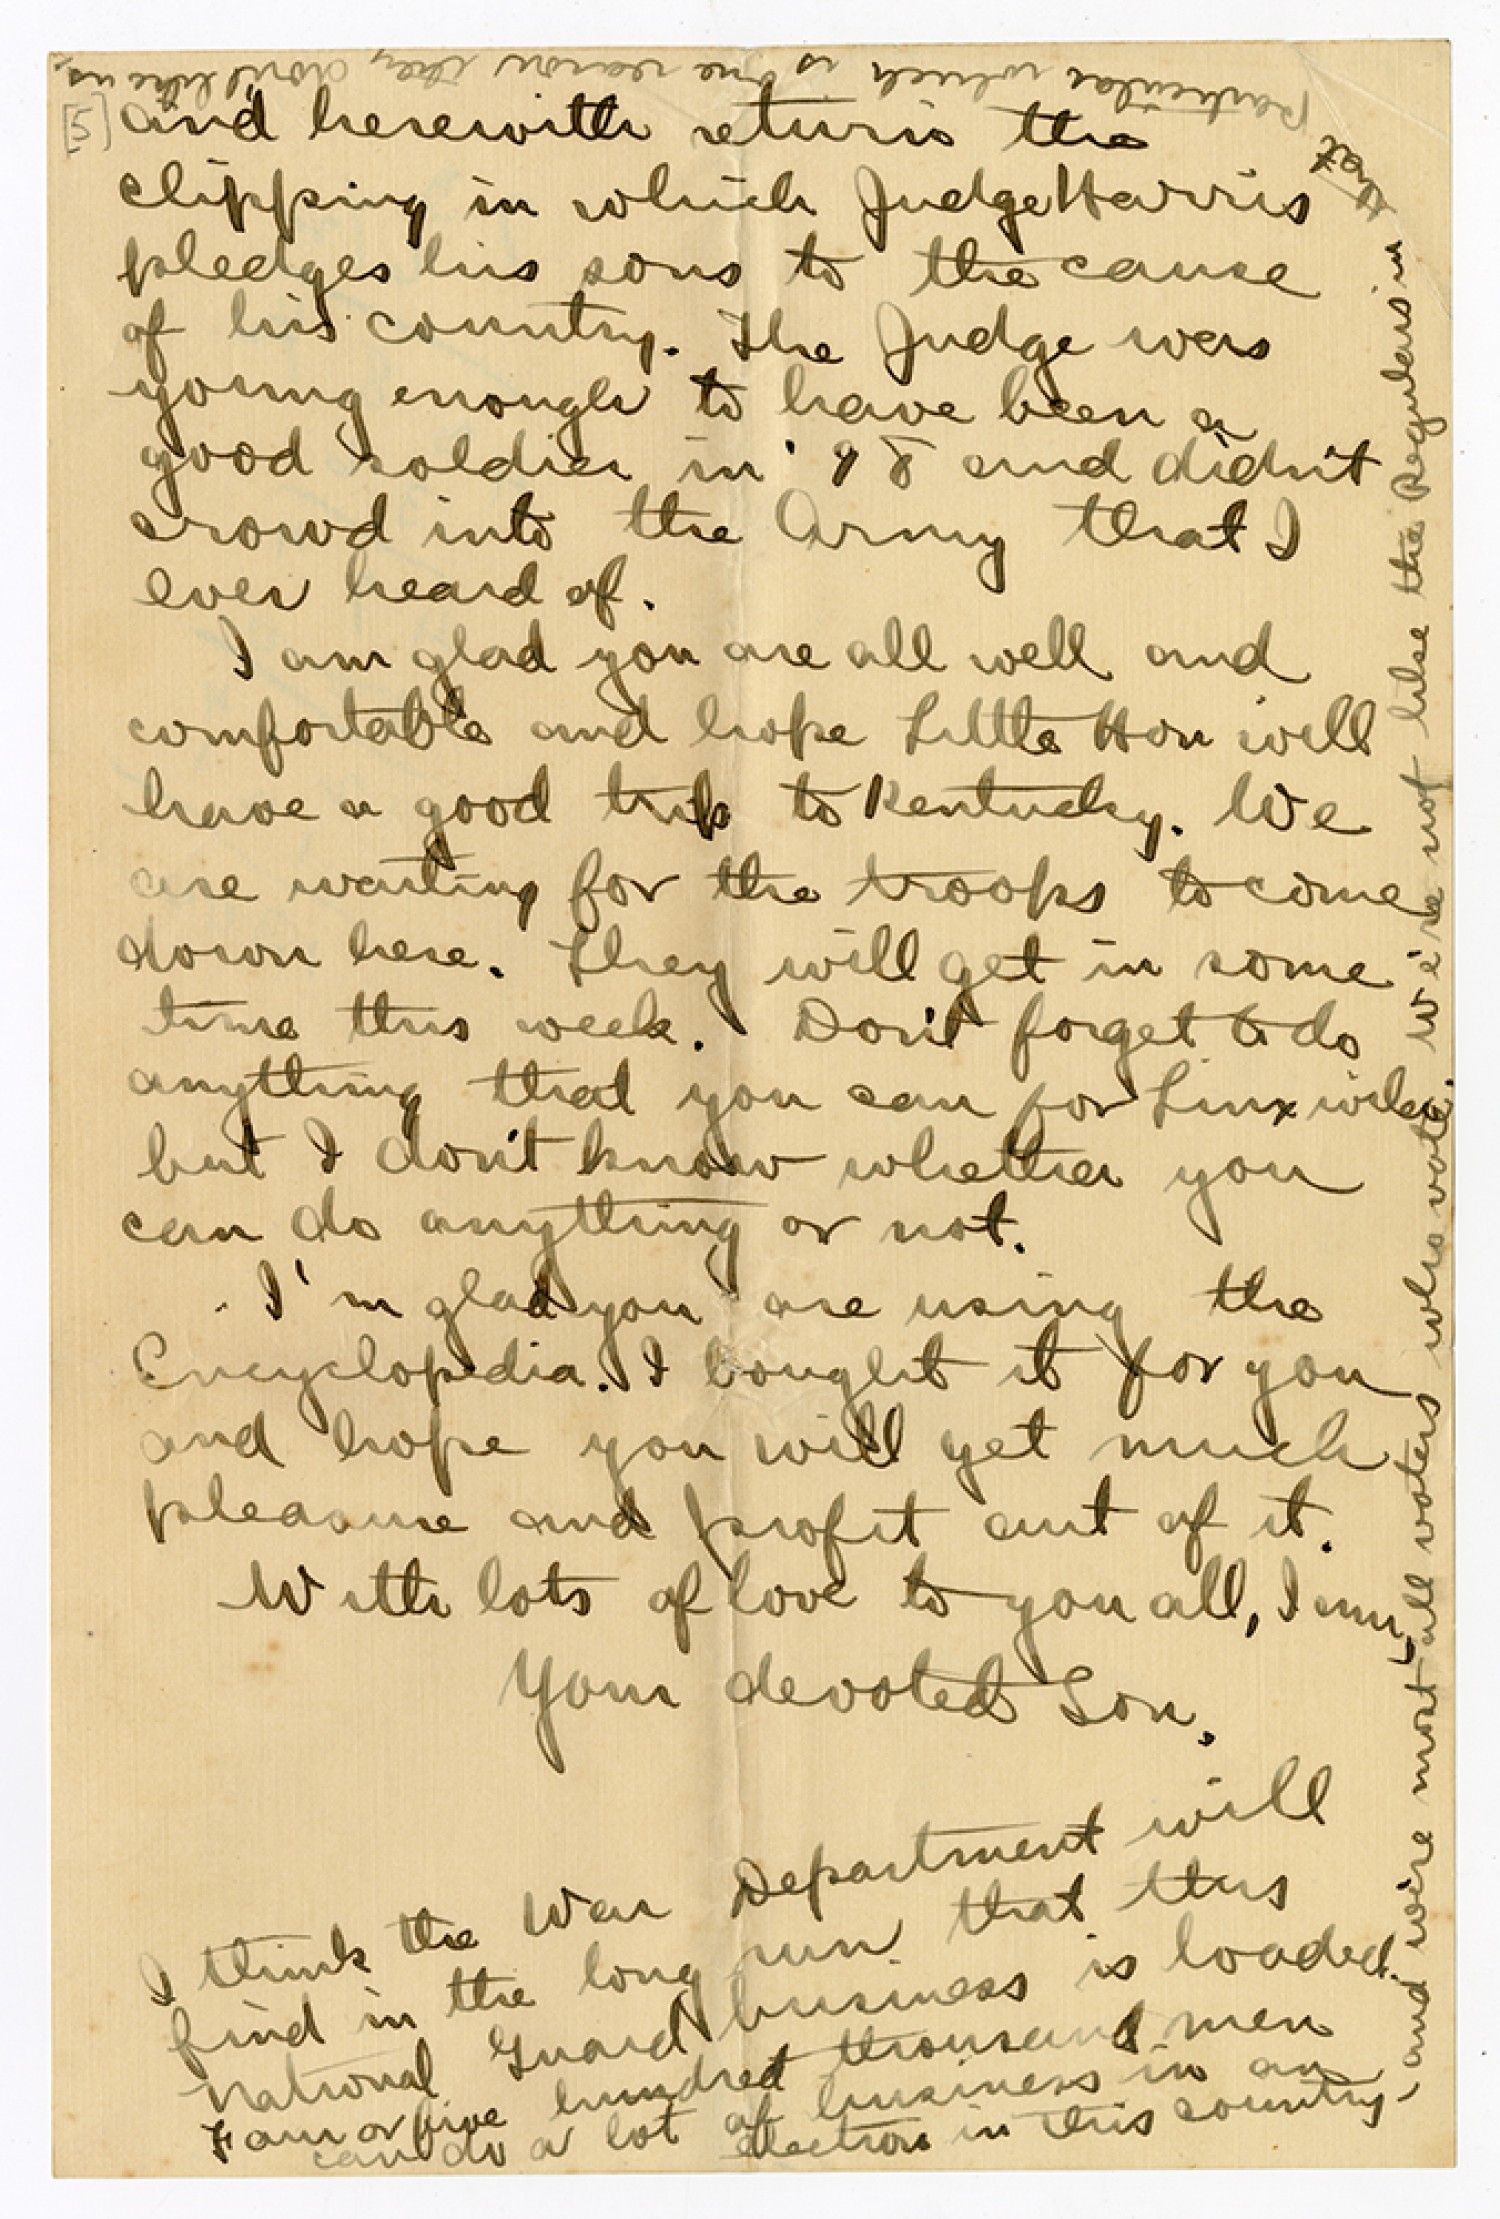 [5] and herewith return the
clipping in which Judge Harris
pledges his sons to the cause
of his country. The Judge was
young enough to have been a
good soldier in '98 and didn't
crowd into the Army that I
ever heard of.
I am glad you are all well and
comfortable and hope Little Hon will
have a good trip to Kentucky. We
are waiting for the troops to come
down here. They will get in some
time this week. Don't forget to do
anything that you can for Linxwiler
but I don't know whether you
can do anything or not.
I'm glad you are using the
Encyclopedia. I bought it for you
and hope you will get much
pleasure and profit out of it.
With lots of love to you all, I am,
Your devoted Son.
I think the War Department will
find in the long run that this
National Guard business is loaded.
Four or five hundred thousand men
can do a lot of business in an
election in this country,
and we're most all voters who vote. We're not like the Regulars in
that
particular which is one reason they don't like us.